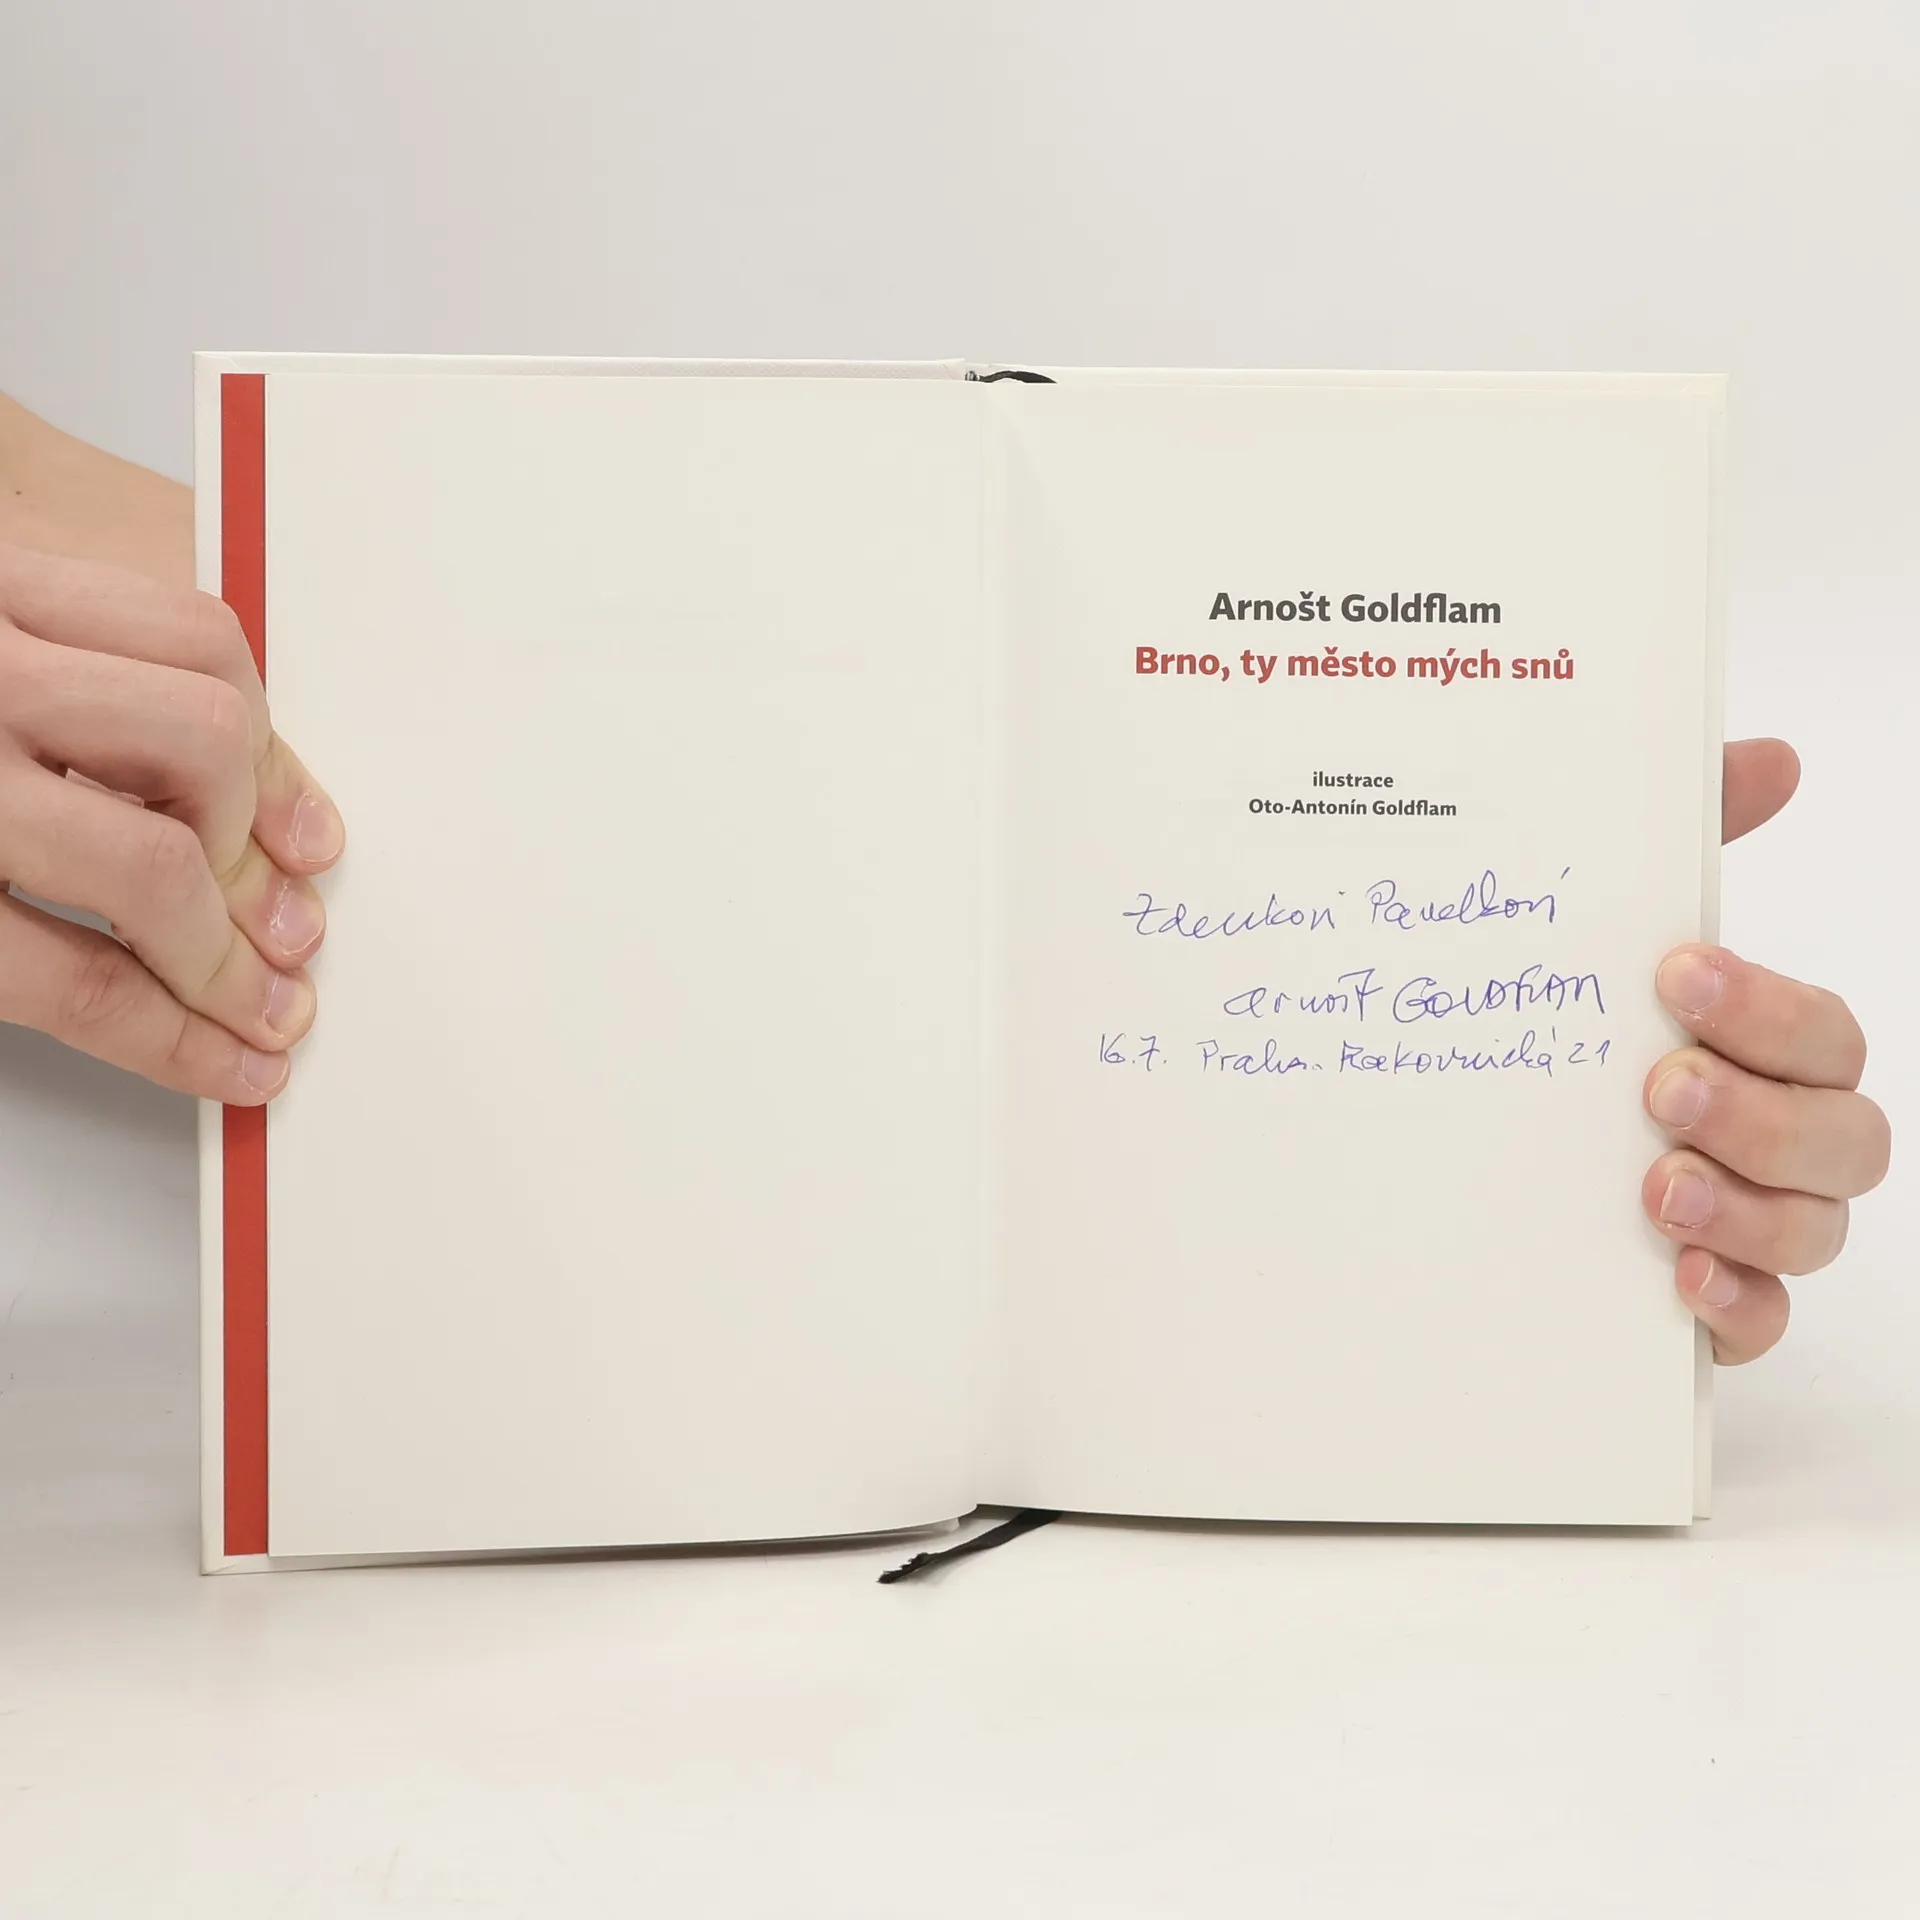 Arnošt Goldflam
Brno, ty město mých snů
ilustrace
Oto-Antonín Goldflam
Zdenkovi Pavelkovi
Arnošt GOLDFLAM
16.7. Praha Rakovnická 21